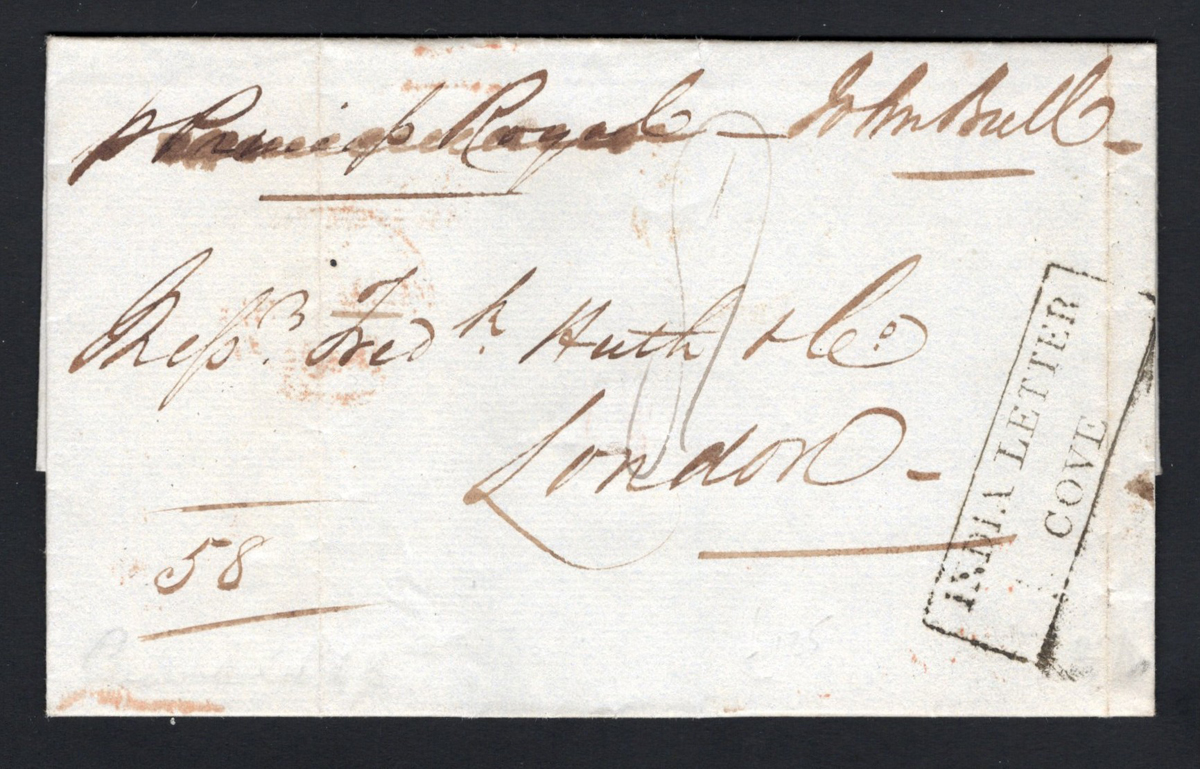 p Princess Royal – John Bull –
Mess.rs Fred.k Huth & Co.
London –
58
INDIA LETTER
COVE
8